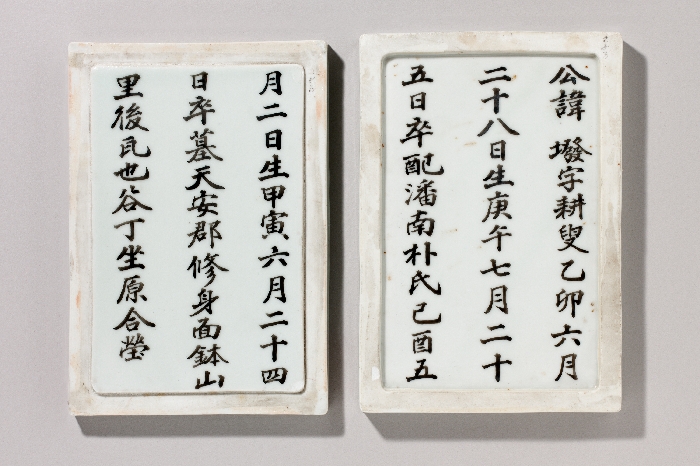 公諱墢字耕叟乙卯六月
二十八日生庚午七月二十
五日卒配潘南朴氏己酉五
月二日生甲寅六月二十四
日卒墓天安郡修身面鉢山
里後瓦也谷丁坐原合塋